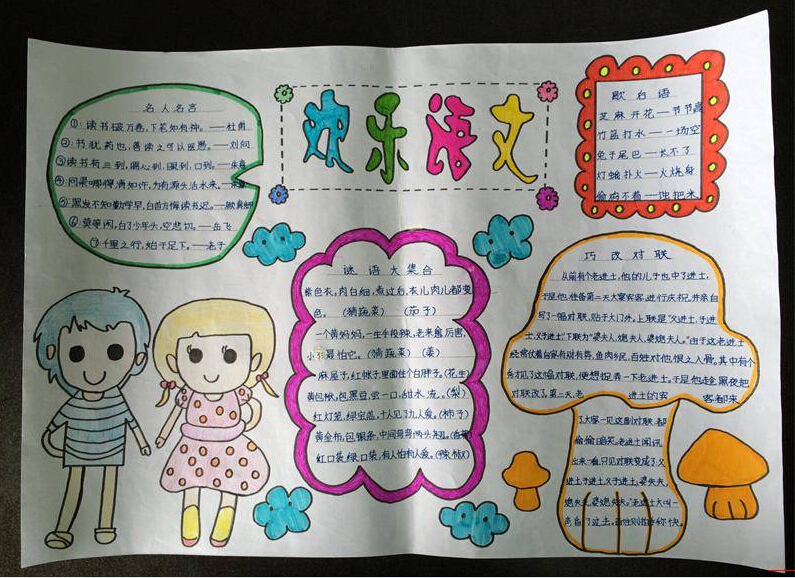 欢乐语文
名人名言
①:读书破万卷,下笔如有神。——杜甫
②:书犹药也,善读之可以医愚。——刘向
③读书有三到,谓心到,眼到,口到。——朱熹
④:问渠哪得清如许,为有源头活水来。——朱熹
⑤:黑发不知勤学早,白首方悔读书迟。——颜真卿
⑥:莫等闲,白了少年头,空悲切。——岳飞
⑦:千里之行,始于足下。——老子
歇后语
芝麻开花——节节高
竹篮打水——一场空
兔子尾巴——长不了
灯蛾扑火——火烧身
偷鸡不着——蚀把米
谜语大集合
紫色衣,肉白细,煮过后,衣儿肉儿都变
色。(猜蔬菜)(茄子)
一个黄妈妈,一生手段辣,老来愈厉害,
小孩最怕它。(猜蔬菜)(姜)
麻屋子,红帐子,里面住个白胖子。(花生)
黄包袱,包黑豆,尝一口,甜水流。(梨)
红灯笼,绿宝盖,十人见了九人爱。(柿子)
黄金布,包银条,中间弯弯两头翘。(香蕉)
红口袋,绿口袋,有人怕有人爱。(辣椒)
巧改对联
从前有个老进士,他的儿子也中了进士,
于是他准备第二天大宴宾客,进行庆祝,并亲自
写了一幅对联,贴于大门外。上联是"父进士,子进
士,父子进士"下联为"婆夫人,媳夫人,婆媳夫人。"由于这老进士
经常仗着官家有财有势,鱼肉乡民,百姓对他恨之入骨。其中有个
乡邻见了这幅对联,便想捉弄一下老进士。于是他趁黑夜把
对联改了。第二天,老进士的客客都来
了大家一见这副对联,都
偷偷暗笑。老进士闻讯
出来一看,只见对联变成了父
进土,子进土,父子进土。婆失夫,
媳失夫,婆媳失夫。"老进士大叫一